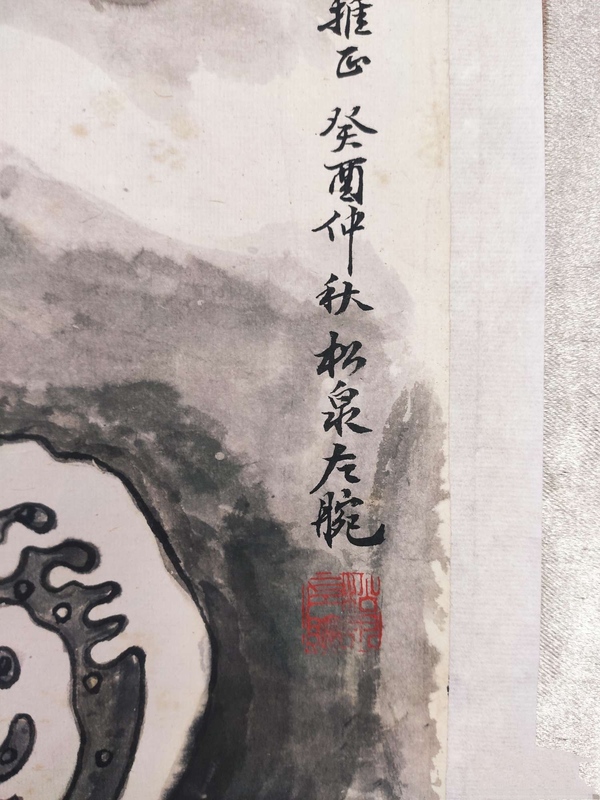 雅正 癸酉仲秋 松泉左腕